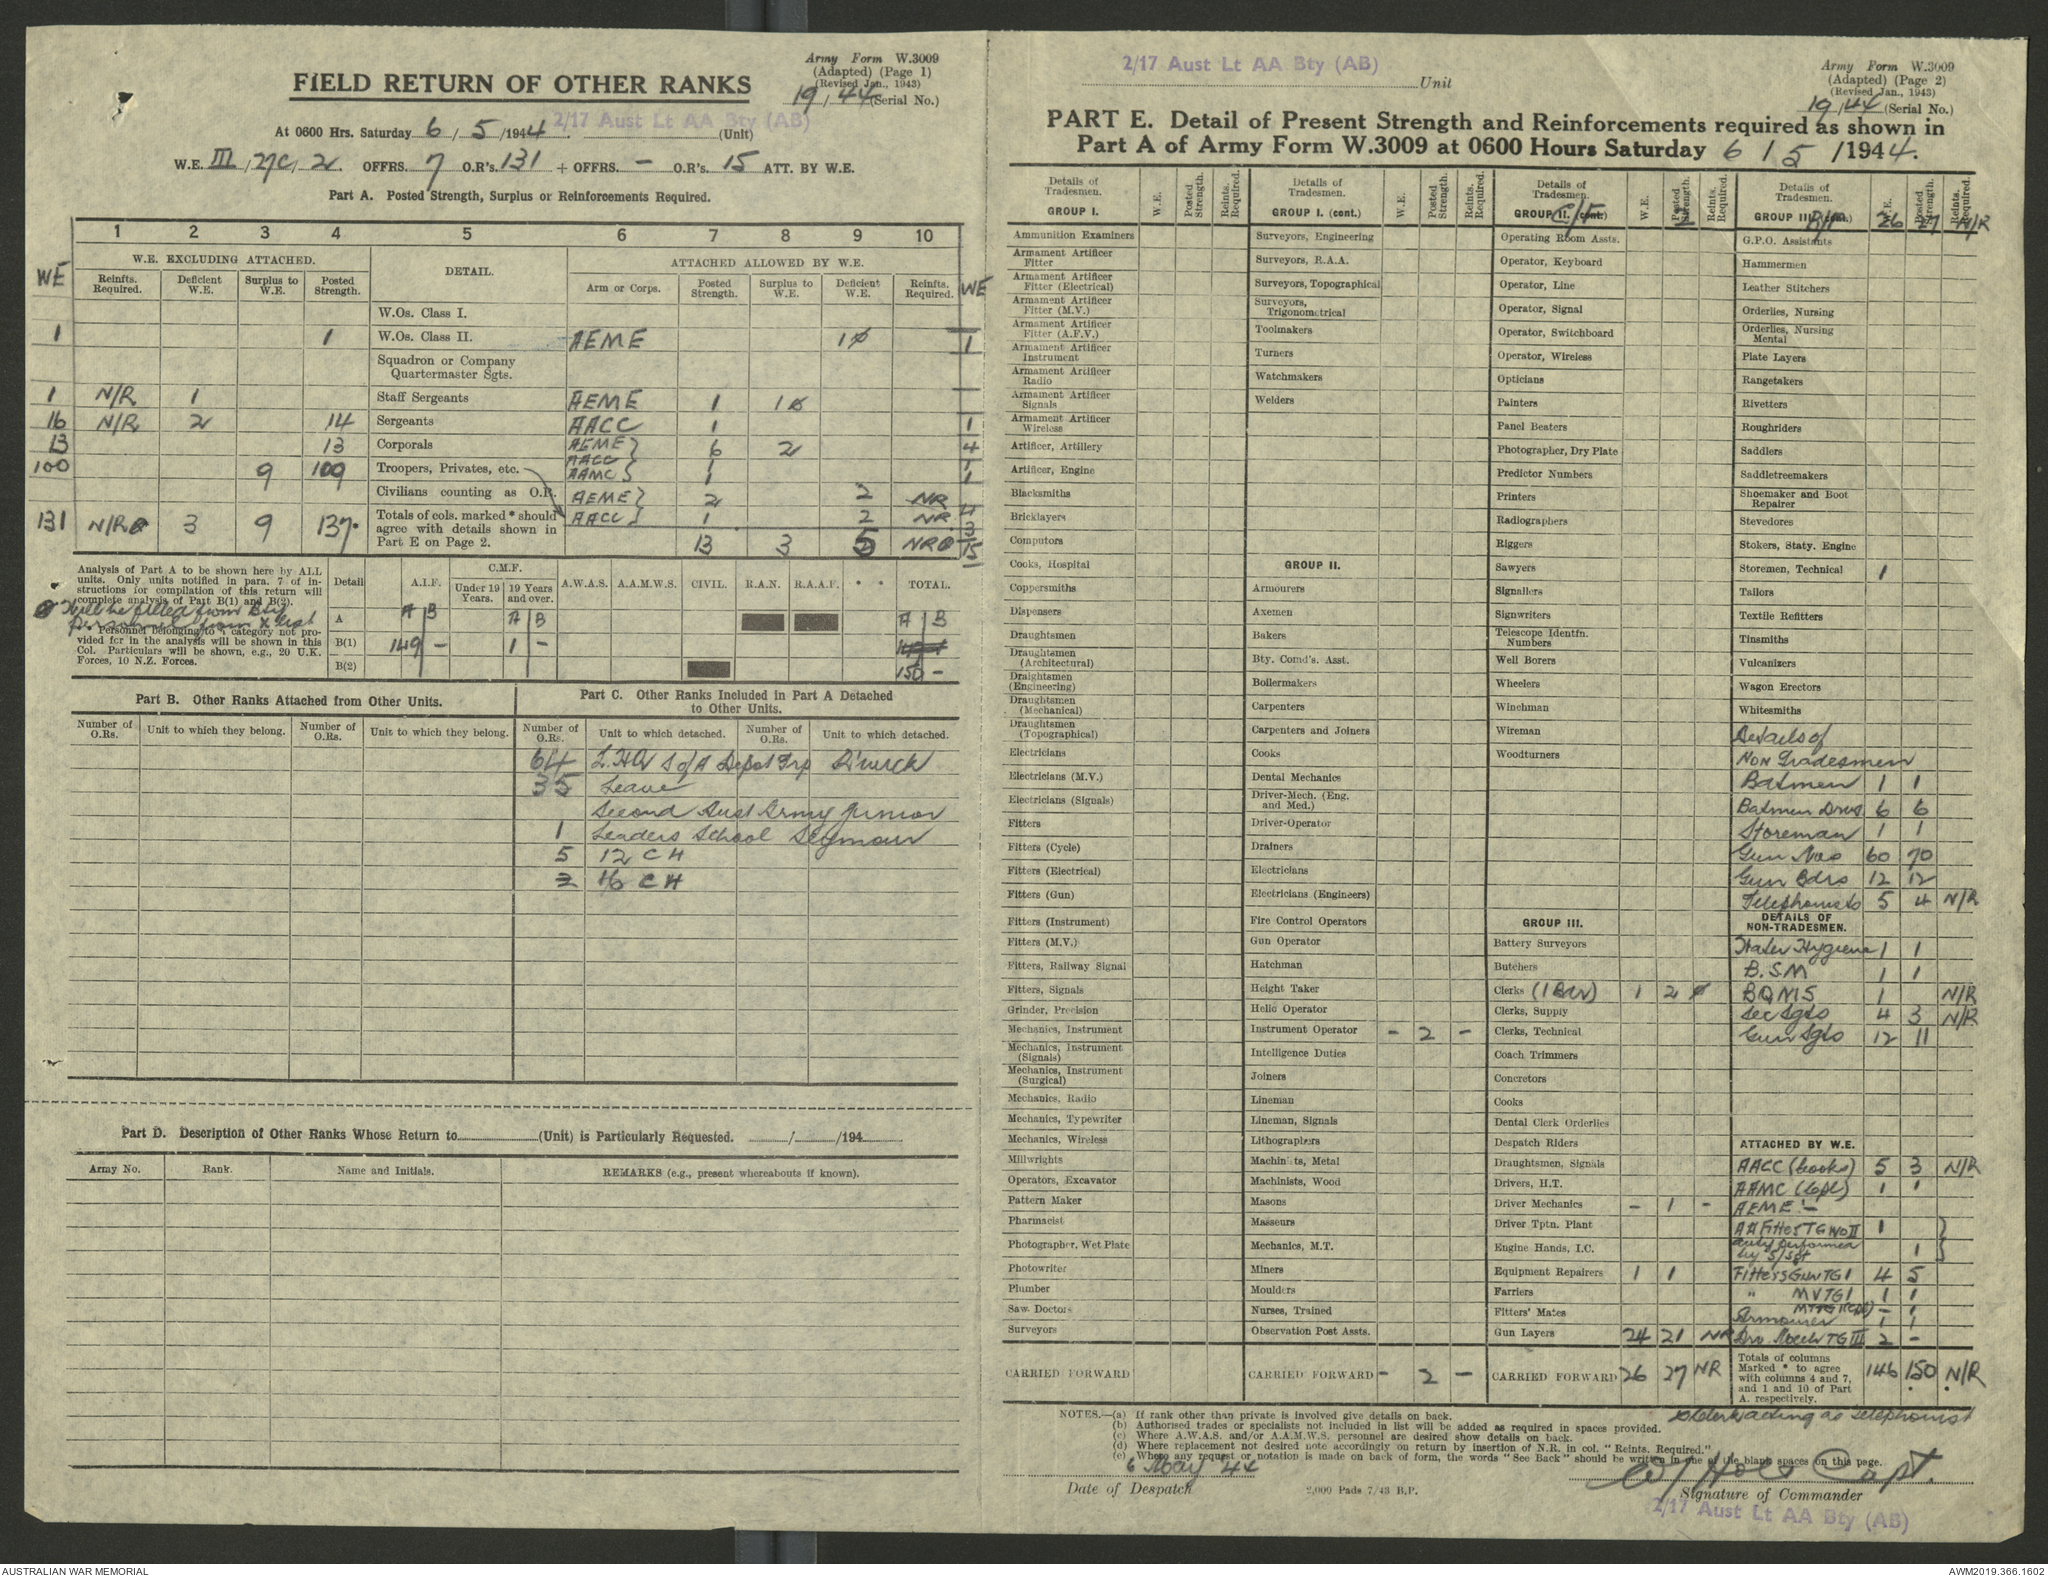 Army Form W.3009
(Adapted) (Page 1)
(Revised Jan., 1943)
19/44 (Serial No.)
FIELD RETURN OF OTHER RANKS
At 0600 Hrs. Saturday 6/5/1944 2/17 Aust Lt AA Bty (AB) (Unit)
W.E. III/27C/2 OFFRS. 7 O.R's. 131 + OFFRS. — O.R's. 15 ATT. BY W.E.
Part A. Posted Strength, Surplus or Reinforcements Required.
1 2 3 4 5 6 7 8 9 10
W.E. EXCLUDING ATTACHED. DETAIL. ATTACHED ALLOWED BY W.E.
WE Reinfts. Required. Deficient W.E. Surplus to W.E. Posted Strength. Arm or Corps. Posted Strength. Surplus to W.E. Deficient W.E. Reinfts. Required. WE
W.Os. Class I.
1 1 W.Os. Class II. AEME 1 1
Squadron or Company Quartermaster Sgts.
1 N/R 1 Staff Sergeants AEME 1 1
16 N/R 2 14 Sergeants AACC 1 1
13 13 Corporals AEME } 6 2 4
AACC 1
100 9 109 Troopers, Privates, etc. AAMC } 1 1
Civilians counting as O.R. AEME } 2 2 NR 4
131 N/R 3 9 137 Totals of cols. marked * should agree with details shown in Part E on Page 2. AACC } 1 2 NR 3
13 3 5 NR 15
Analysis of Part A to be shown here by ALL units. Only units notified in para. 7 of instructions for compilation of this return will complete analysis of Part B(1) and B(2).
Will be filled from Bty personnel from X list
Personnel belonging to a category not provided for in the analysis will be shown in this Col. Particulars will be shown, e.g., 20 U.K. Forces, 10 N.Z. Forces.
Detail A.I.F. C.M.F. Under 19 Years. 19 Years and over. A.W.A.S. A.A.M.W.S. CIVIL. R.A.N. R.A.A.F. * * TOTAL.
A A B A B A B
B(1) 149 — 1 —
B(2) 150 —
Part B. Other Ranks Attached from Other Units.
Number of O.Rs. Unit to which they belong. Number of O.Rs. Unit to which they belong.
Part C. Other Ranks Included in Part A Detached to Other Units.
Number of O.Rs. Unit to which detached. Number of O.Rs. Unit to which detached.
64 LHQ S of A Depot Trp
35 Leave
Second Aust Army Junior
1 Leaders School Seymour
5 12 CH
2 16 CH
Part D. Description of Other Ranks Whose Return to (Unit) is Particularly Requested. / /194
Army No. Rank. Name and Initials. REMARKS (e.g., present whereabouts if known).
2/17 Aust Lt AA Bty (AB) Unit
Army Form W.3009
(Adapted) (Page 2)
(Revised Jan., 1943)
19/44 (Serial No.)
PART E. Detail of Present Strength and Reinforcements required as shown in
Part A of Army Form W.3009 at 0600 Hours Saturday 6/5/1944.
Details of Tradesmen. W.E. Posted Strength. Reints. Required.
GROUP I.
Ammunition Examiners
Armament Artificer Fitter
Armament Artificer Fitter (Electrical)
Armament Artificer Fitter (M.V.)
Armament Artificer Fitter (A.F.V.)
Armament Artificer Instrument
Armament Artificer Radio
Armament Artificer Signals
Armament Artificer Wireless
Artificer, Artillery
Artificer, Engine
Blacksmiths
Bricklayers
Computors
Cooks, Hospital
Coppersmiths
Dispensers
Draughtsmen
Draughtsmen (Architectural)
Draightsmen (Engineering)
Draughtsmen (Mechanical)
Draughtsmen (Topographical)
Electricians
Electricians (M.V.)
Electricians (Signals)
Fitters
Fitters (Cycle)
Fitters (Electrical)
Fitters (Gun)
Fitters (Instrument)
Fitters (M.V.)
Fitters, Railway Signal
Fitters, Signals
Grinder, Precision
Mechanics, Instrument
Mechanics, Instrument (Signals)
Mechanics, Instrument (Surgical)
Mechanics, Radio
Mechanics, Typewriter
Mechanics, Wireless
Millwrights
Operators, Excavator
Pattern Maker
Pharmacist
Photographer, Wet Plate
Photowriter
Plumber
Saw Doctors
Surveyors
CARRIED FORWARD
Details of Tradesmen. W.E. Posted Strength. Reints. Required.
GROUP I. (cont.)
Surveyors, Engineering
Surveyors, R.A.A.
Surveyors, Topographical
Surveyors, Trigonometrical
Toolmakers
Turners
Watchmakers
Welders
GROUP II.
Armourers
Axemen
Bakers
Bty. Comd's. Asst.
Boilermakers
Carpenters
Carpenters and Joiners
Cooks
Dental Mechanics
Driver-Mech. (Eng. and Med.)
Driver-Operator
Drainers
Electricians
Electricians (Engineers)
Fire Control Operators
Gun Operator
Hatchman
Height Taker
Helio Operator
Instrument Operator — 2 —
Intelligence Duties
Joiners
Lineman
Lineman, Signals
Lithographers
Machinists, Metal
Machinists, Wood
Masons
Masseurs
Mechanics, M.T.
Miners
Moulders
Nurses, Trained
Observation Post Assts.
CARRIED FORWARD — 2 —
Details of Tradesmen. W.E. Posted Strength. Reints. Required.
GROUP II. (cont.) C/F 2
Operating Room Assts.
Operator, Keyboard
Operator, Line
Operator, Signal
Operator, Switchboard
Operator, Wireless
Opticians
Painters
Panel Beaters
Photographer, Dry Plate
Predictor Numbers
Printers
Radiographers
Riggers
Sawyers
Signallers
Signwriters
Telescope Identfn. Numbers
Well Borers
Wheelers
Winchman
Wireman
Woodturners
GROUP III.
Battery Surveyors
Butchers
Clerks 1 2
Clerks, Supply
Clerks, Technical
Coach Trimmers
Concretors
Cooks
Dental Clerk Orderlies
Despatch Riders
Draughtsmen, Signals
Drivers, H.T.
Driver Mechanics — 1 —
Driver Tptn. Plant
Engine Hands, I.C.
Equipment Repairers 1 1
Farriers
Fitters' Mates
Gun Layers 24 21 NR
CARRIED FORWARD 26 27 NR
Details of Tradesmen. W.E. Posted Strength. Reints. Required.
GROUP III. (cont.) 26 27 N/R
G.P.O. Assistants
Hammermen
Leather Stitchers
Orderlies, Nursing
Orderlies, Nursing Mental
Plate Layers
Rangetakers
Rivetters
Roughriders
Saddlers
Saddletreemakers
Shoemaker and Boot Repairer
Stevedores
Stokers, Staty. Engine
Storemen, Technical 1
Tailors
Textile Refitters
Tinsmiths
Vulcanizers
Wagon Erectors
Whitesmiths
Details of
Non Tradesmen
Batmen 1 1
Batmen Dvrs 6 6
Storeman 1 1
Gun Nos 60 70
Gun Bdrs 12 12
Telephonists 5 4 N/R
DETAILS OF NON-TRADESMEN.
Water Hygiene 1 1
B.S.M 1 1
BQMS 1 N/R
Sec Sgts 4 3 N/R
Gun Sgts 12 11
ATTACHED BY W.E.
AACC (Cooks) 5 3 N/R
AAMC (Cpl) 1 1
AEME :—
AA Fitter TG WO II 1 }
duty performed by S/Sgt 1 }
Fitters Gun TG I 4 5
" MV TG I 1 1
— 1
Armourer 1 1
Dvr Mech TG III 2 —
Totals of columns Marked * to agree with columns 4 and 7, and 1 and 10 of Part A. respectively. 146 150 N/R
NOTES.—(a) If rank other than private is involved give details on back.
(b) Authorised trades or specialists not included in list will be added as required in spaces provided.
(c) Where A.W.A.S. and/or A.A.M.W.S. personnel are desired show details on back.
(d) Where replacement not desired note accordingly on return by insertion of N.R. in col. "Reints. Required."
(e) Where any request or notation is made on back of form, the words "See Back" should be written in one of the blank spaces on this page.
Clerk acting as Telephonist
6 May 44
Date of Despatch
2,000 Pads 7/43 B.P.
Capt.
Signature of Commander
2/17 Aust Lt AA Bty (AB)
AUSTRALIAN WAR MEMORIAL
AWM2019.366.1602